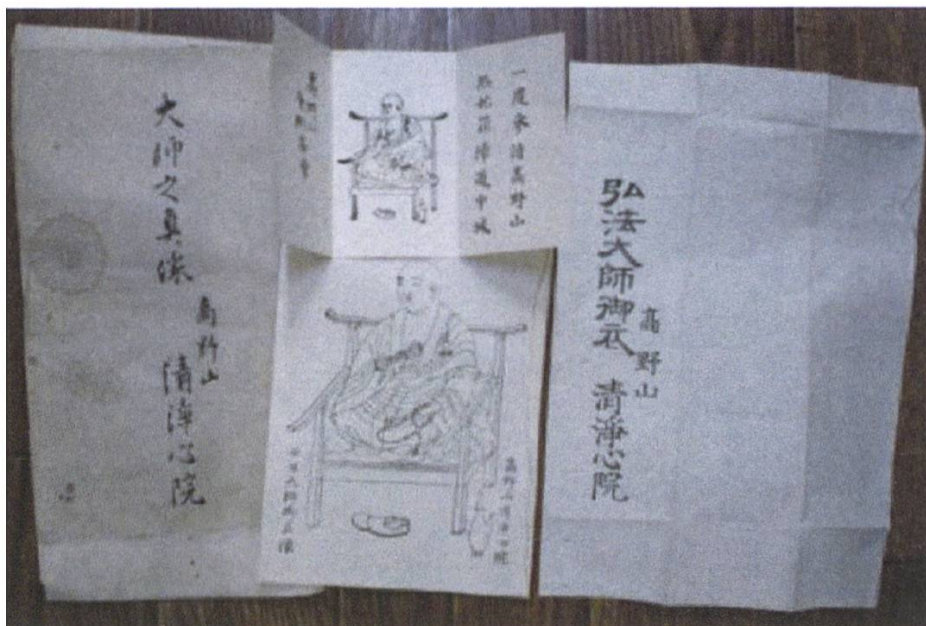 弘法大師御衣
高野山
清淨心院
一度参詣高野山
無始罪障道中滅
高野山清浄心院
大師之真像
高野山
清淨心院